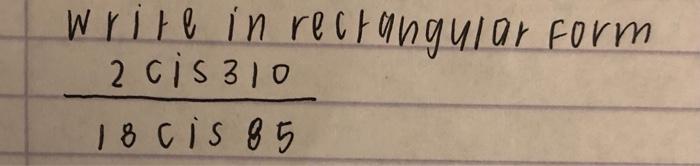 Write in rectangular form
2 cis 310
18 cis 85